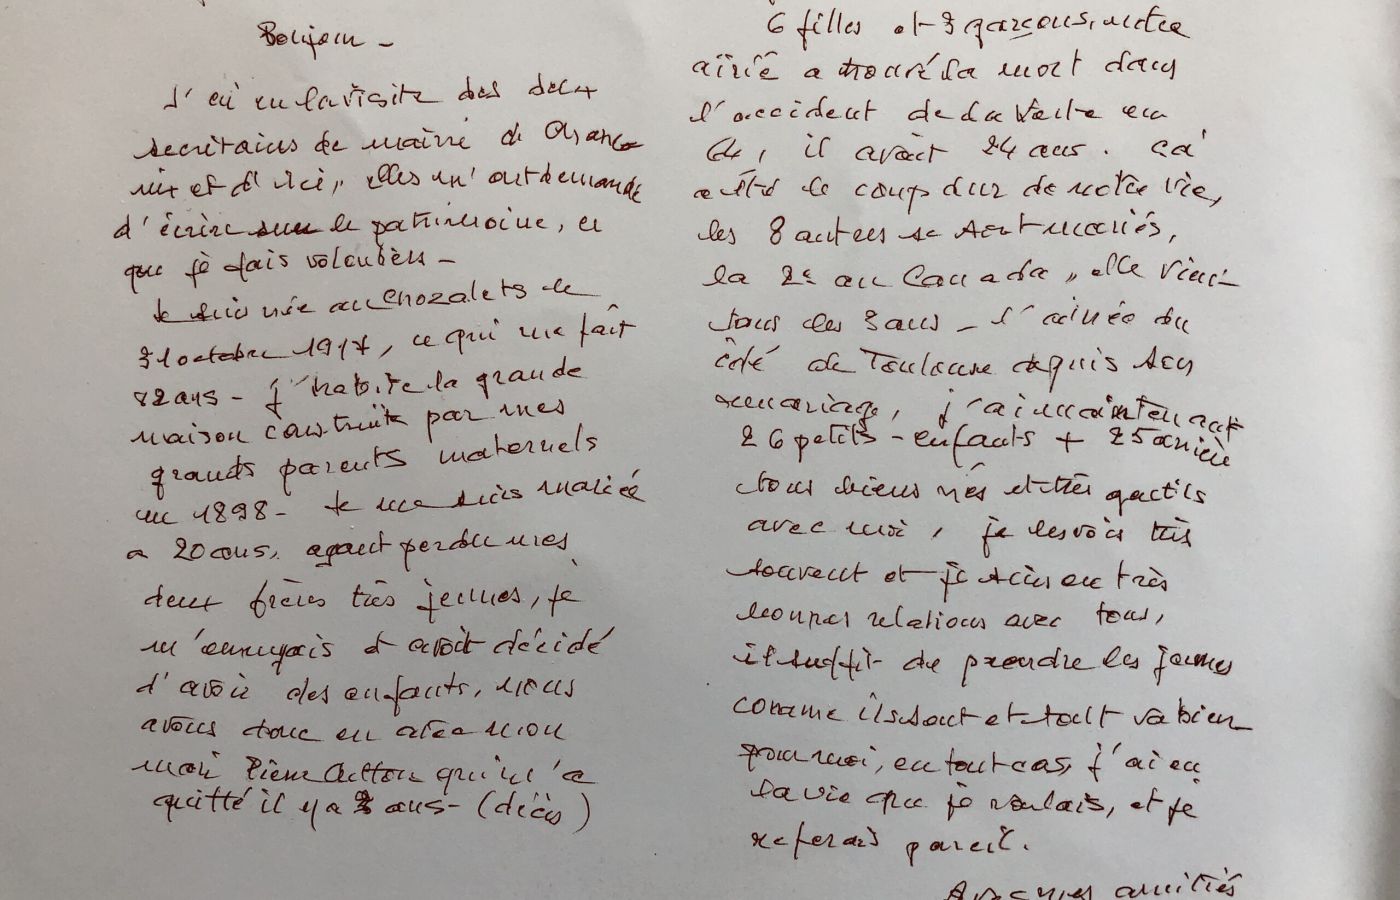 Bonjour -
J'ai eu la visite des deux
secrétaires de mairie de
et d'ici, elles m'ont demandé
d'écrire sur le patrimoine, ce
que je fais volontiers -
Je suis née au Chozalets le
31 octobre 1917, ce qui me fait
82 ans - j'habite la grande
maison construite par mes
grands parents maternels
en 1898 - Je me suis mariée
a 20 ans, ayant perdu mes
deux frères très jeunes, je
m'ennuyais et avait décidé
d'avoir des enfants, nous
avons donc eu avec mon
mari Pierre qui m'a
quitté il y a ans - (décès)
6 filles et 3 garçons, notre
aîné a trouvé la mort dans
l'accident de la Verte en
64, il avait 24 ans. ça
a été le coup dur de notre vie,
les 8 autres se sont mariés,
la 2e au Canada, elle vient
tous les 3 ans - l'ainée du
côté de Toulouse depuis son
remariage, j'ai maintenant
26 petits-enfants + 25 arrière
tous biens nés et très gentils
avec moi, je les vois très
souvent et je suis en très
bonnes relations avec tous,
il suffit de prendre les jeunes
comme ils sont et tout va bien
pour moi, en tout cas, j'ai eu
la vie que je voulais, et je
referais pareil.
Avec mes amitiés